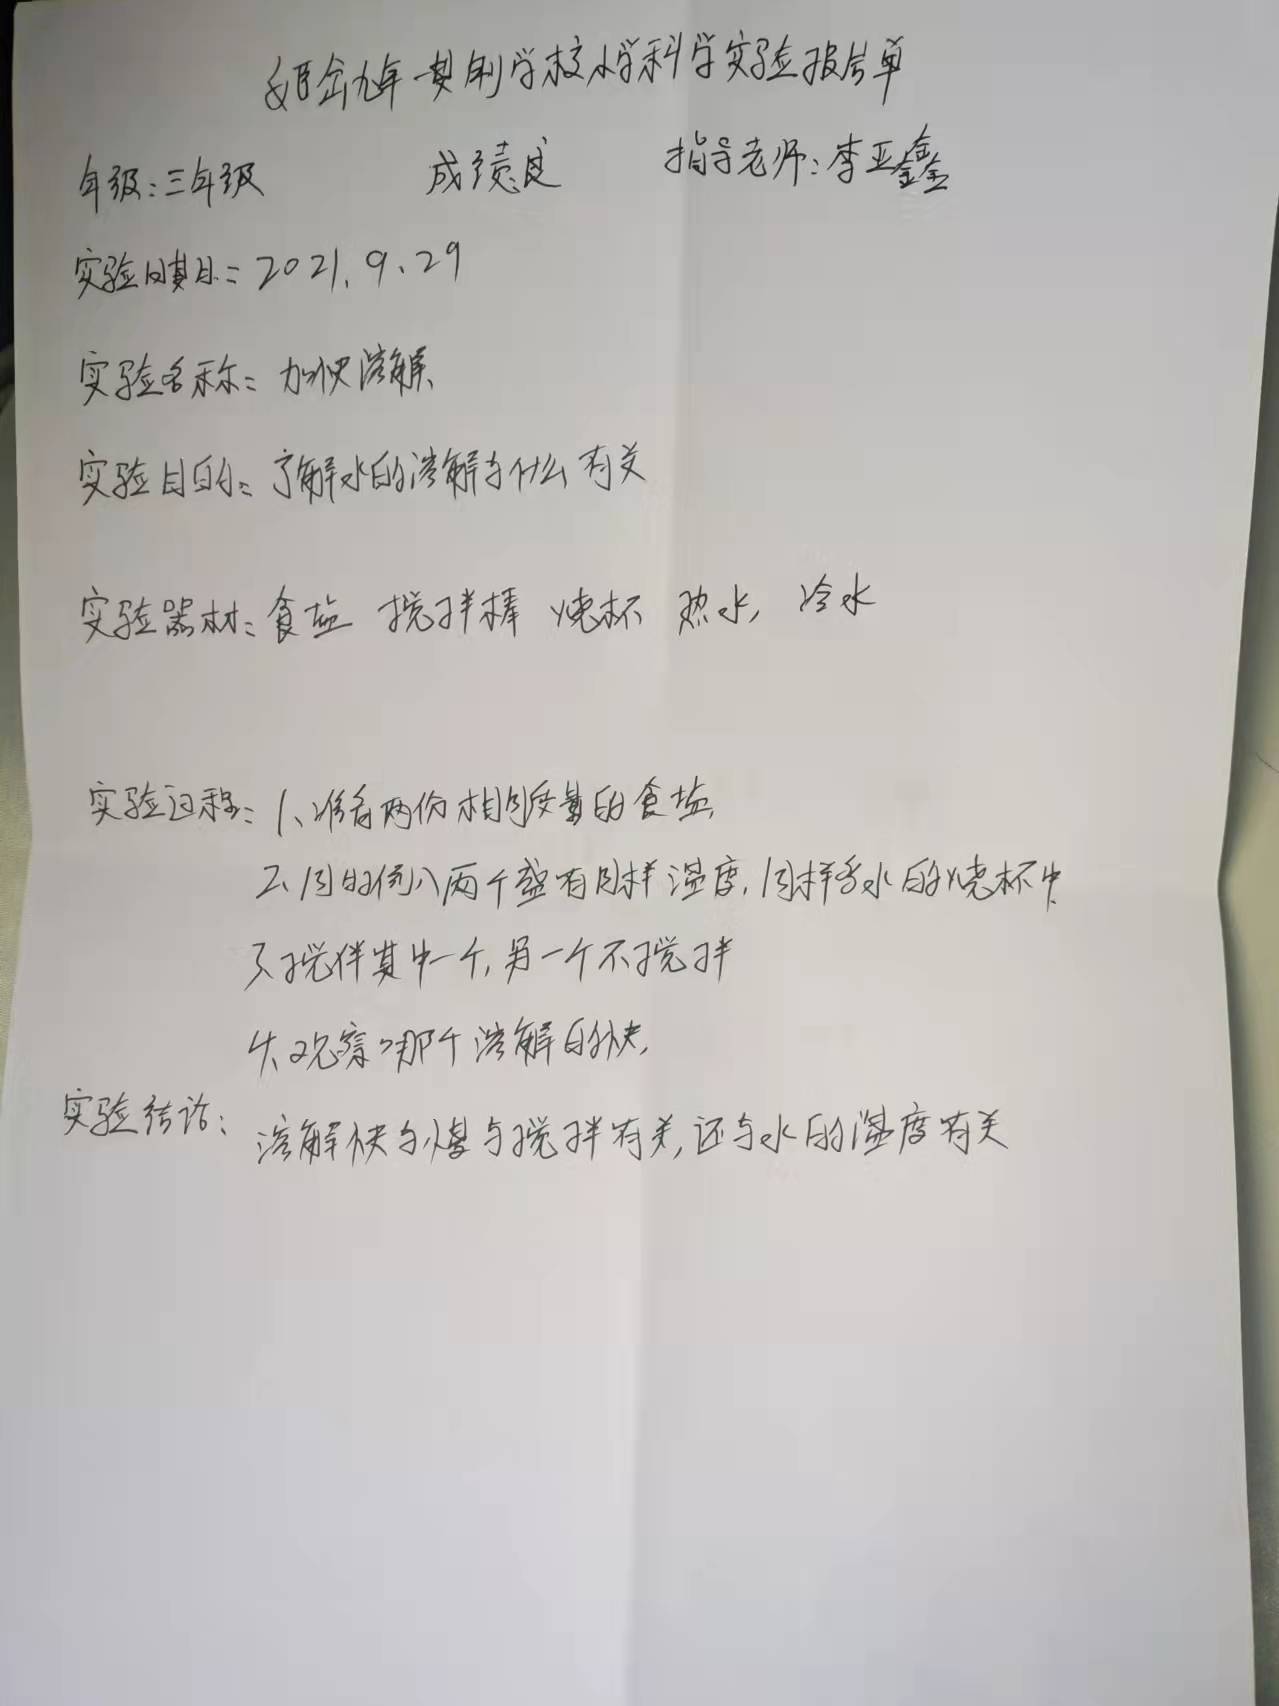 姬岔九年一贯制学校小学科学实验报告单
年级:三年级 成绩:良 指导老师:李亚鑫
实验日期:2021.9.29
实验名称:加快溶解
实验目的:了解水的溶解与什么有关
实验器材:食盐 搅拌棒 烧杯 热水,冷水
实验过程:1、准备两份相同质量的食盐
2、同时倒入两个盛有同样温度,同样多水的烧杯中
3、搅伴其中一个,另一个不搅拌
4、观察哪个溶解的快,
实验结论:
溶解快与慢与搅拌有关,还与水的温度有关